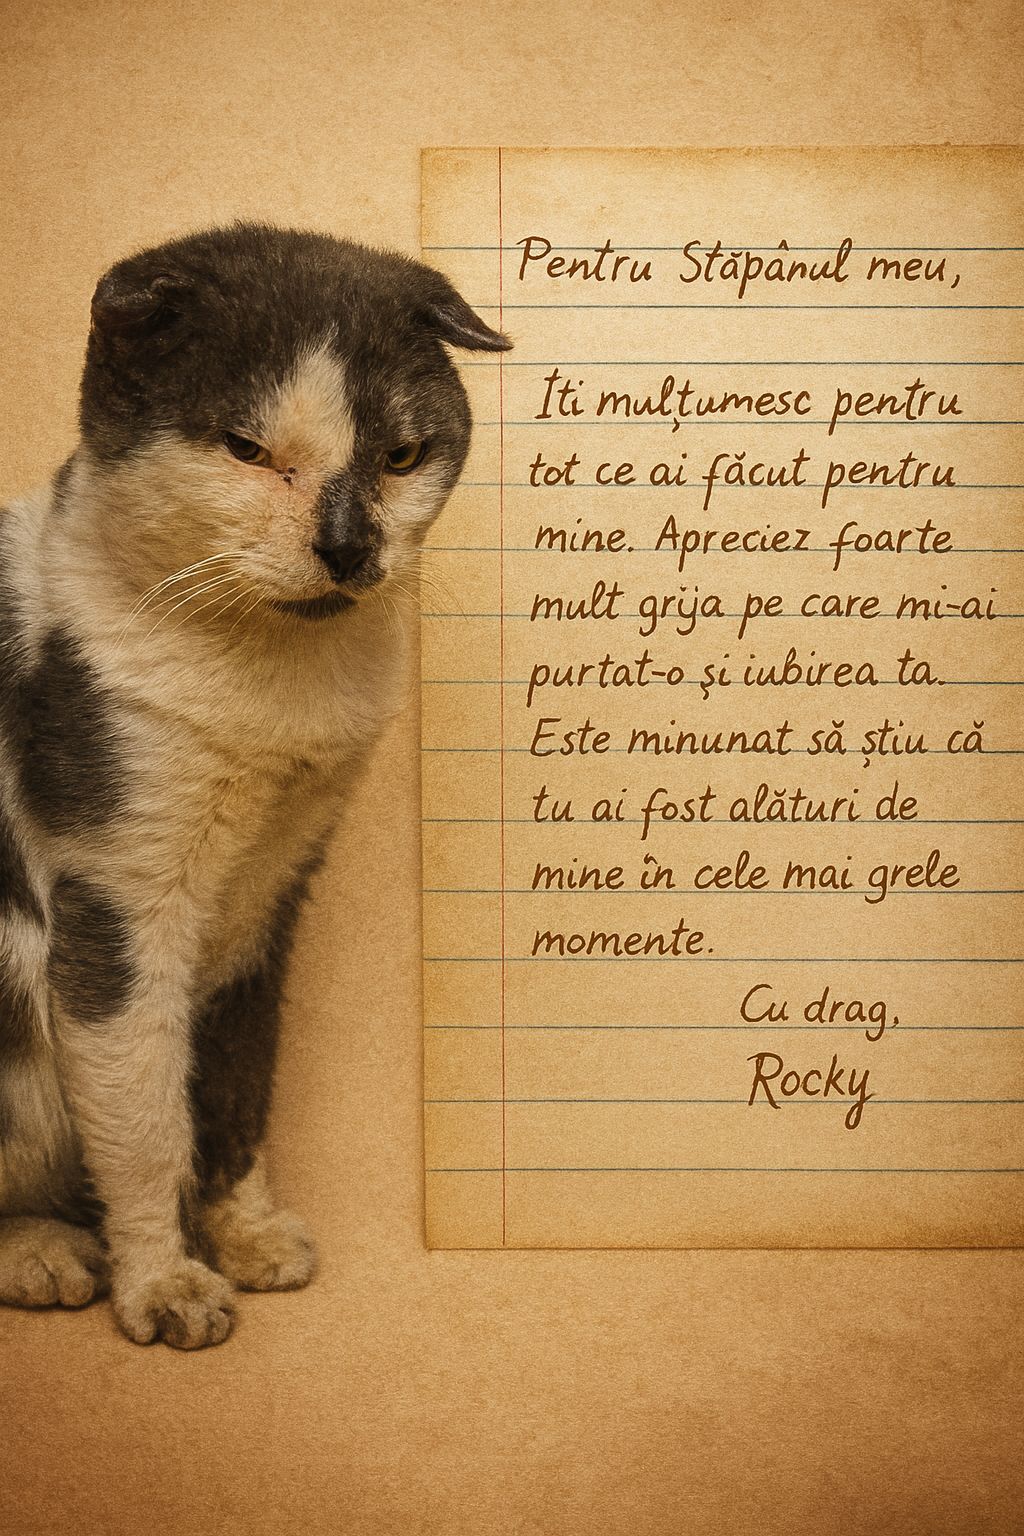 Pentru Stăpânul meu,
Iti mulțumesc pentru
tot ce ai făcut pentru
mine. Apreciez foarte
mult grija pe care mi-ai
purtat-o și iubirea ta.
Este minunat să știu că
tu ai fost alături de
mine în cele mai grele
momente.
Cu drag,
Rocky